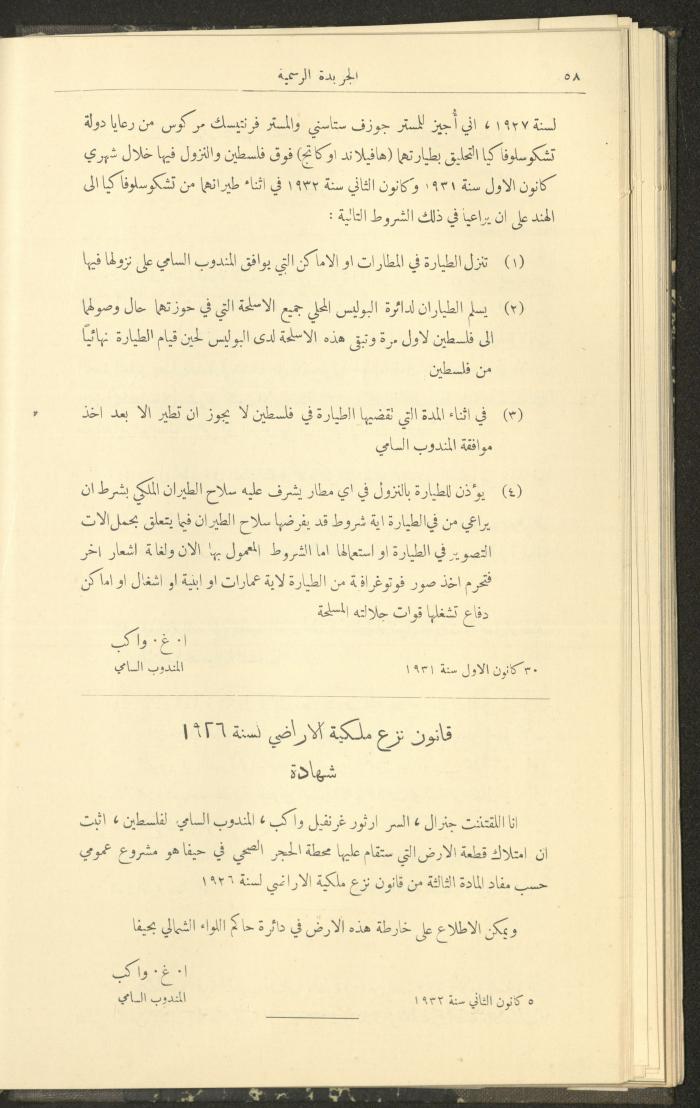 ٥٨
الجريدة الرسمية
لسنة ١٩٢٧ ، اني أُجيز للمستر جوزف ستاسني والمستر فرنتيسك مركوس من رعايا دولة
تشكوسلوفاكيا التحليق بطيارتهما (هافيلاند اوكاتج) فوق فلسطين والنزول فيها خلال شهري
كانون الاول سنة ١٩٣١ وكانون الثاني سنة ١٩٣٢ في اثناء طيرانهما من تشكوسلوفاكيا الى
الهند على ان يراعيا في ذلك الشروط التالية :
(١) تنزل الطيارة في المطارات او الاماكن التي يوافق المندوب السامي على نزولها فيها
(٢) يسلم الطياران لدائرة البوليس المحلي جميع الاسلحة التي في حوزتهما حال وصولهما
الى فلسطين لاول مرة وتبقى هذه الاسلحة لدى البوليس لحين قيام الطيارة نهائيًا
من فلسطين
(٣) في اثناء المدة التي تقضيها الطيارة في فلسطين لا يجوز ان تطير الا بعد اخذ
موافقة المندوب السامي
(٤) يؤذن للطيارة بالنزول في اي مطار يشرف عليه سلاح الطيران الملكي بشرط ان
يراعي من في الطيارة اية شروط قد يفرضها سلاح الطيران فيما يتعلق بحمل الات
التصوير في الطيارة او استعمالها اما الشروط المعمول بها الان ولغاية اشعار اخر
فتحرم اخذ صور فوتوغرافية من الطيارة لاية عمارات او ابنية او اشغال او اماكن
دفاع تشغلها قوات جلالته المسلحة
ا٠ غ٠ واكب
٣٠ كانون الاول سنة ١٩٣١
المندوب السامي
قانون نزع ملكية الاراضي لسنة ١٩٢٦
شهادة
انا اللفتننت جنرال ، السر ارثور غرنفيل واكب ، المندوب السامي لفلسطين ، اثبت
ان امتلاك قطعة الارض التي ستقام عليها محطة الحجر الصحي في حيفا هو مشروع عمومي
حسب مفاد المادة الثالثة من قانون نزع ملكية الاراضي لسنة ١٩٢٦
ويمكن الاطلاع على خارطة هذه الارض في دائرة حاكم اللواء الشمالي بحيفا
ا٠ غ٠ واكب
٥ كانون الثاني سنة ١٩٣٢
المندوب السامي